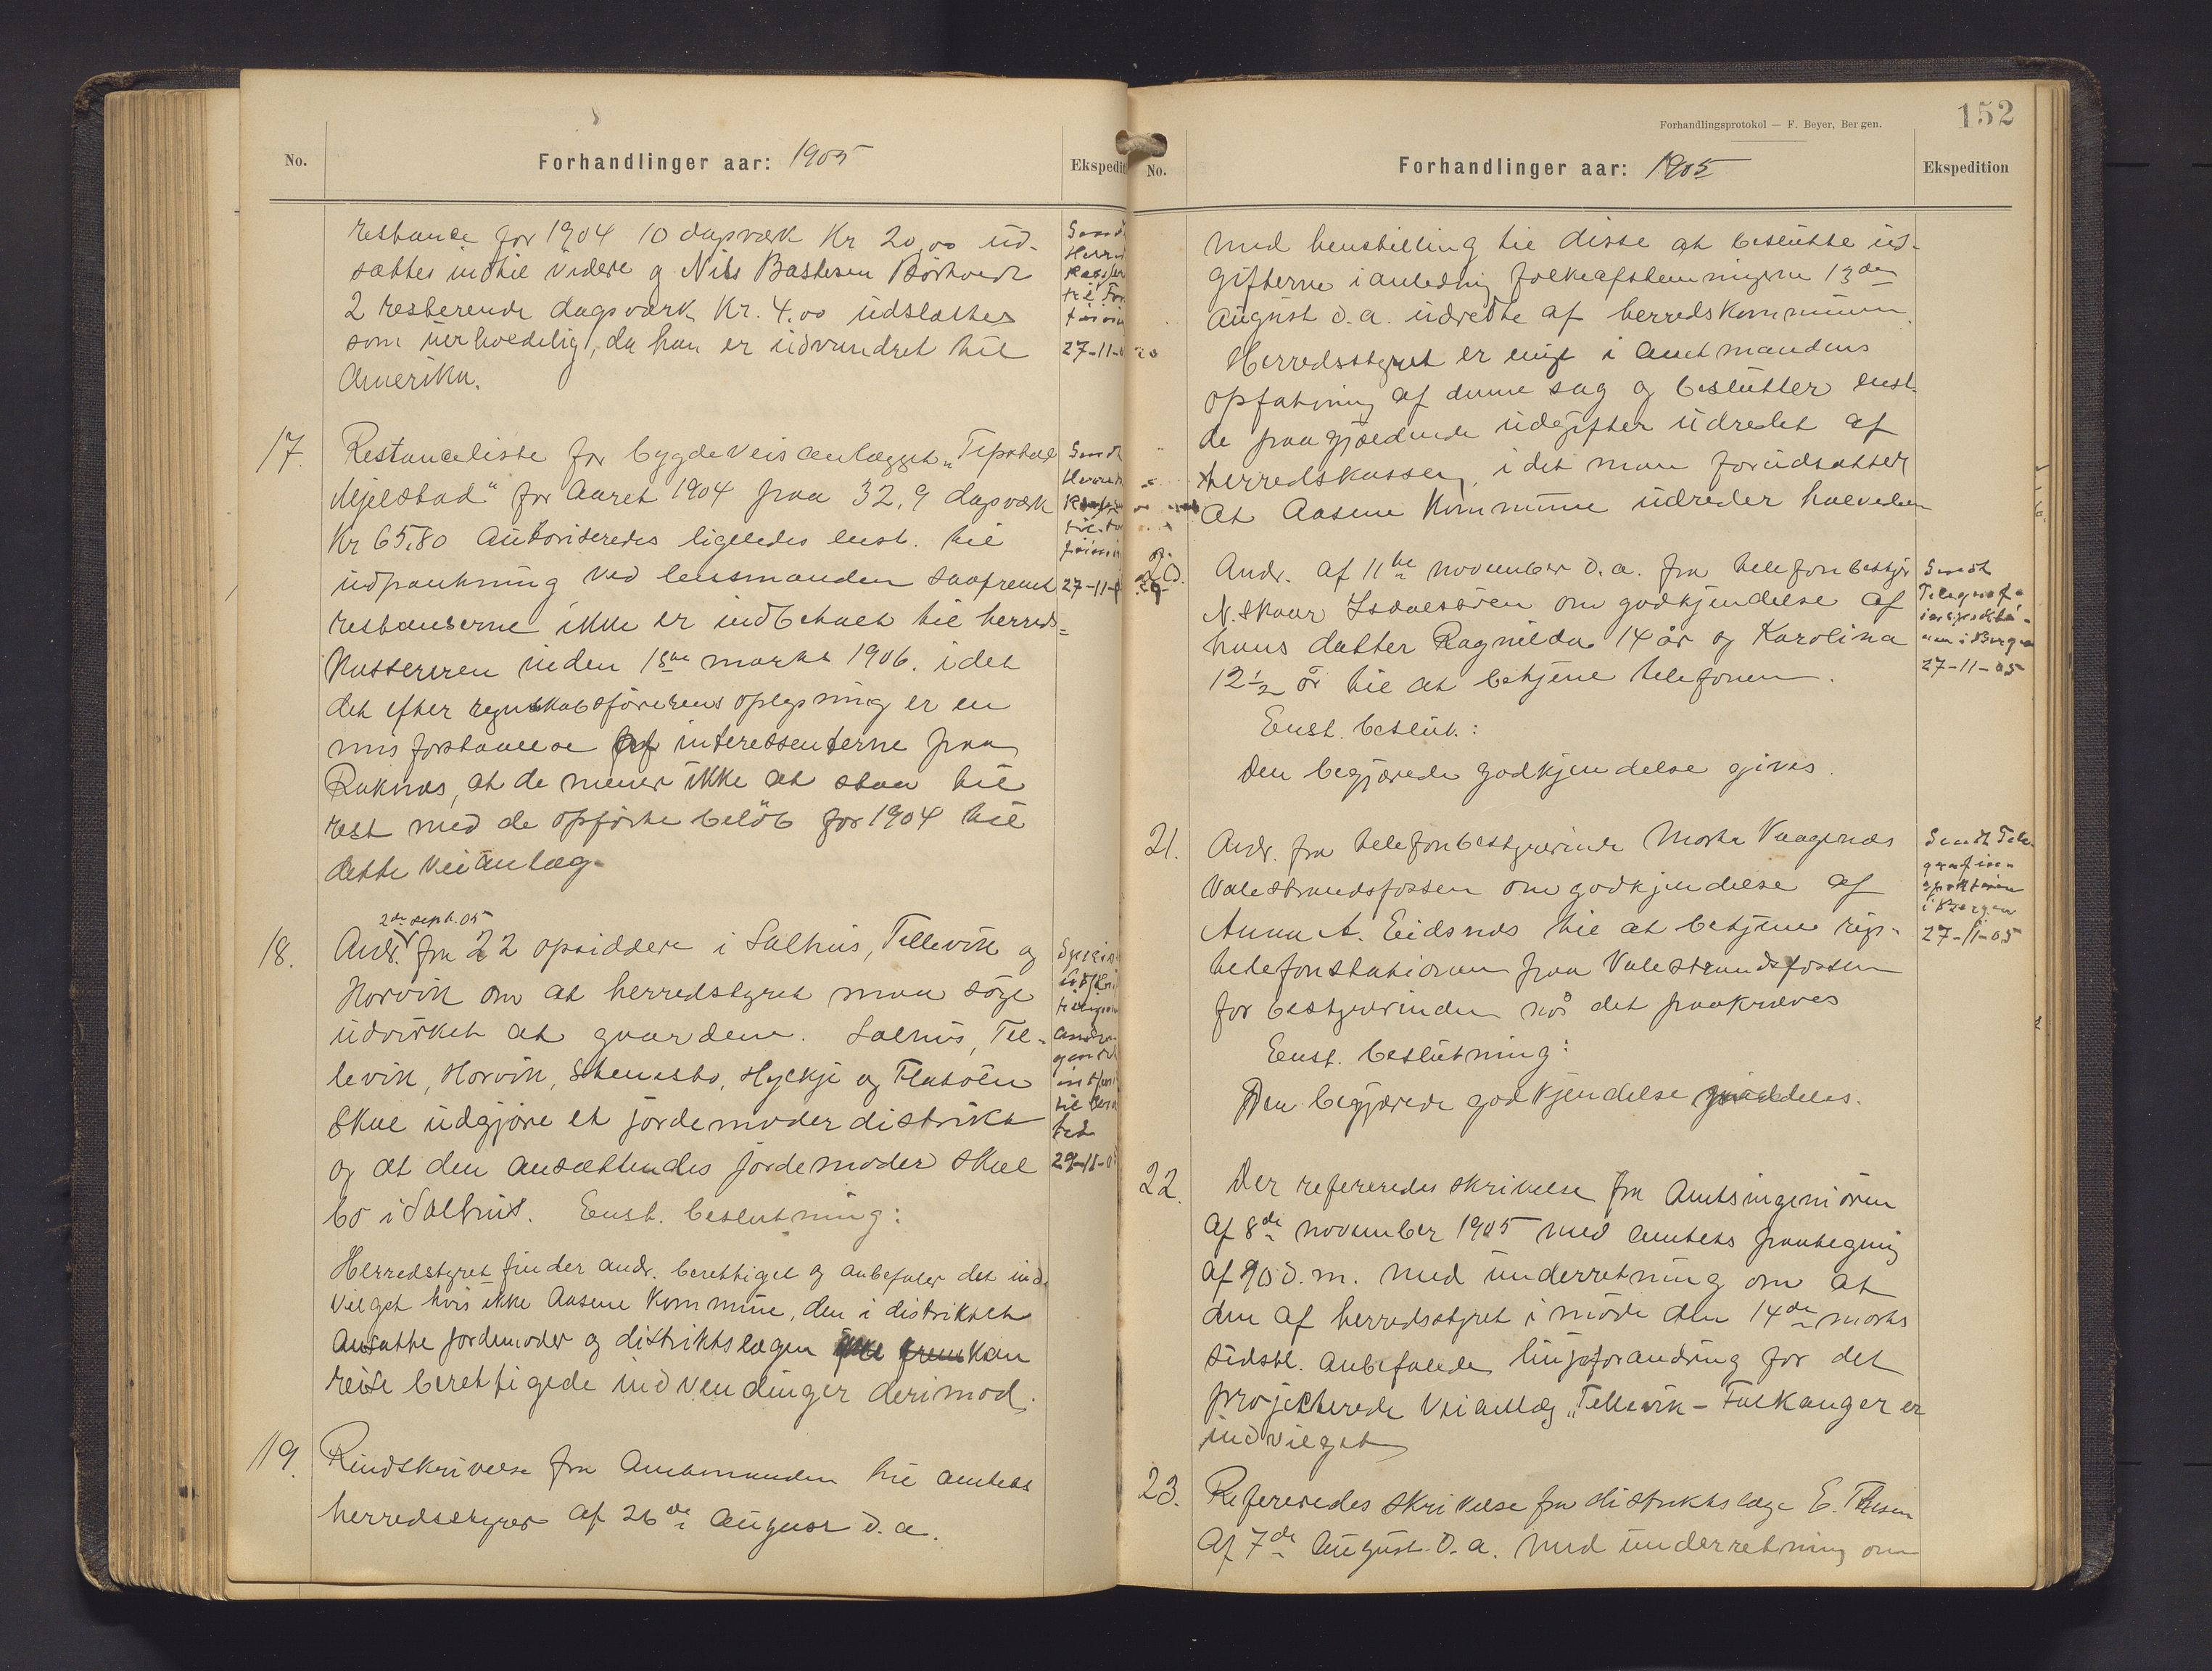 No.
Forhandlinger aar: 1905
Ekspedit
restance for 1904 10 dagsværk Kr 20,00 ud-
sættes indtil videre og Nils Bastesen Börtvedt
2 resterende dagsværk Kr. 4.00 udslættes
som uerholdelig, da han er udvandret til
Amerika.
Sendt
Herreds
kasser
til
27-11-0
17. Restanceliste for bygdeveisanlægget "Tepstad
Mjelstad" for aaret 1904 paa 32,9 dagsværk
Kr 65,80 autoriseredes ligeledes enst. til
udpantning ved lensmanden saafremt
restanserne ikke er indbetalt til herreds-
kassereren inden 1ste marts 1906. idet
det efter regnskabsförerens oplysning er en
misforstaaelse af interessenterne paa
Raknæs, at de mener ikke at staa til
rest med de opförte belöb for 1904 til
dette veianlæg.
Sendt
Herreds
27-11-0
2de sept. 05
18. Andr. fra 22 opsiddere i Salhus, Tellevik og
Horvik om at herredstyret maa söge
udvirket at gaardene. Salhus, Tel-
levik, Horvik, Stenestø, Hylkje og Flatöen
skal udgjöre et jordemoder distrikt
og at den ansættendes jordemoder skal
bo i Salhus. Enst. beslutning:
Herredstyret finder andr. berettiget og anbefaler det ind-
vilget hvis ikke Aasene kommune, den i distriktet
ansatte jordemoder og distriktslægen kan
reise berettigede indvendinger derimod.
29-11-0
19. Rundskrivelse fra Amtmanden til amtets
herredsstyrer af 26de august d.a.
Forhandlingsprotokol — F. Beyer, Bergen.
152
No.
Forhandlinger aar: 1905
Ekspedition
med henstilling til disse at beslutte ud-
gifterne i anledning folkeafstemningen 13de
august d.a. udredte af herredskommunen.
Herredsstyret er enig i amtmandens
opfatning af denne sag og beslutter enst.
de paagjældende udgifter udredet af
Herredskassen, idet man forudsætter
at Aasene Kommune udreder halvdelen
20. Andr. af 11te november d.a. fra telefonbestyr
N. Skaar Isdalsören om godkjendelse af
hans datter Ragnilda 14 år og Karolina
12½ år til at betjene telefonen.
Enst. beslut.:
Den begjærede godkjendelse gives.
Sendt
Telegraf-
inspektö-
ren i Bergen
27-11-05
21. Andr. fra telefonbestyrerinde Marta Vaagenæs
Valestrandsfossen om godkjendelse af
Anna A. Eidsnes til at betjene rigs-
telefonstationen paa Valestrandsfossen
for bestyrerinden når det paakræves
Enst. beslutning:
Den begjærede godkjendelse meddeles.
Sendt Tele-
grafin-
spektören
i Bergen
27-11-05
22. Der refereredes skrivelse fra Amtsingeniören
af 8de november 1905 med amtets paategning
af 10 d.m. med underretning om at
den af herredsstyret i möde den 14de marts
sidstl. anbefalede linjeforandring for det
projekterede veianlæg "Tellevik – Falkanger er
indvilget
23. Refereredes skrivelse fra distriktslæge E. Thesen
af 7de august d.a. med underretning om